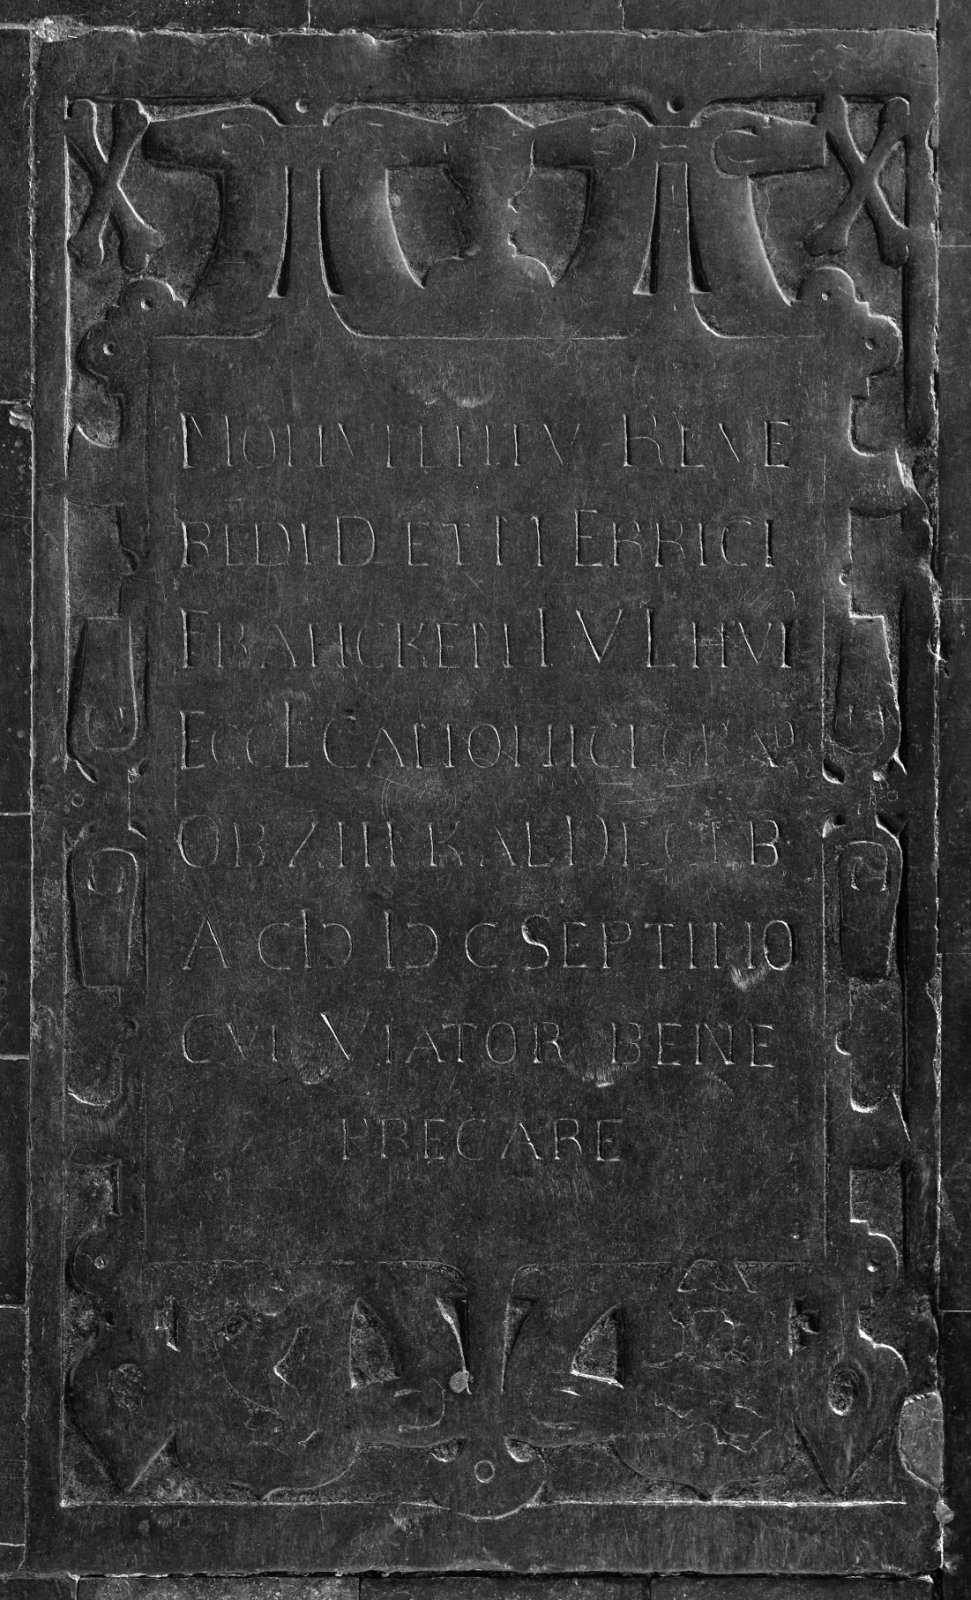 MONVMENTV REVE
RĒDI D ET M ERRICI
FRANCKEN I V L HVI
ECCL CANONICI GRAD
OB XIII KAL DECEB
A CIↃ IↃ C SEPTIMO
CVI VIATOR BENE
PRECARE